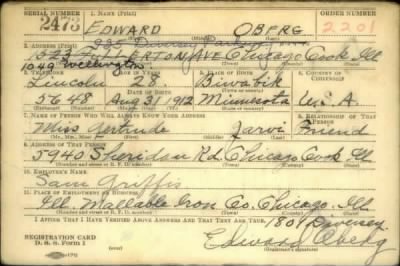 SERIAL NUMBER 1. NAME (Print) ORDER NUMBER
2473 EDWARD OBERG 2201
2. ADDRESS (Print)
FULLERTON AVE. Chicago Cook Ill
1049 Wellington
3. TELEPHONE 4. AGE IN YEARS 5. PLACE OF BIRTH 6. COUNTRY OF CITIZENSHIP
Lincoln 28 Biwabik
DATE OF BIRTH
5648 Aug 31 1912 Minnesota U.S.A.
7. NAME OF PERSON WHO WILL ALWAYS KNOW YOUR ADDRESS 8. RELATIONSHIP OF THAT PERSON
Miss Gertrude Jarvi Friend
9. ADDRESS OF THAT PERSON
5940 Sheridan Rd. Chicago Cook Ill
10. EMPLOYER'S NAME
Sam Griffis
11. PLACE OF EMPLOYMENT OR BUSINESS
Ill. Mallable Iron Co. Chicago. Ill
1801 Diversey
I AFFIRM THAT I HAVE VERIFIED ABOVE ANSWERS AND THAT THEY ARE TRUE.
REGISTRATION CARD
D. S. S. Form 1
Edward Oberg